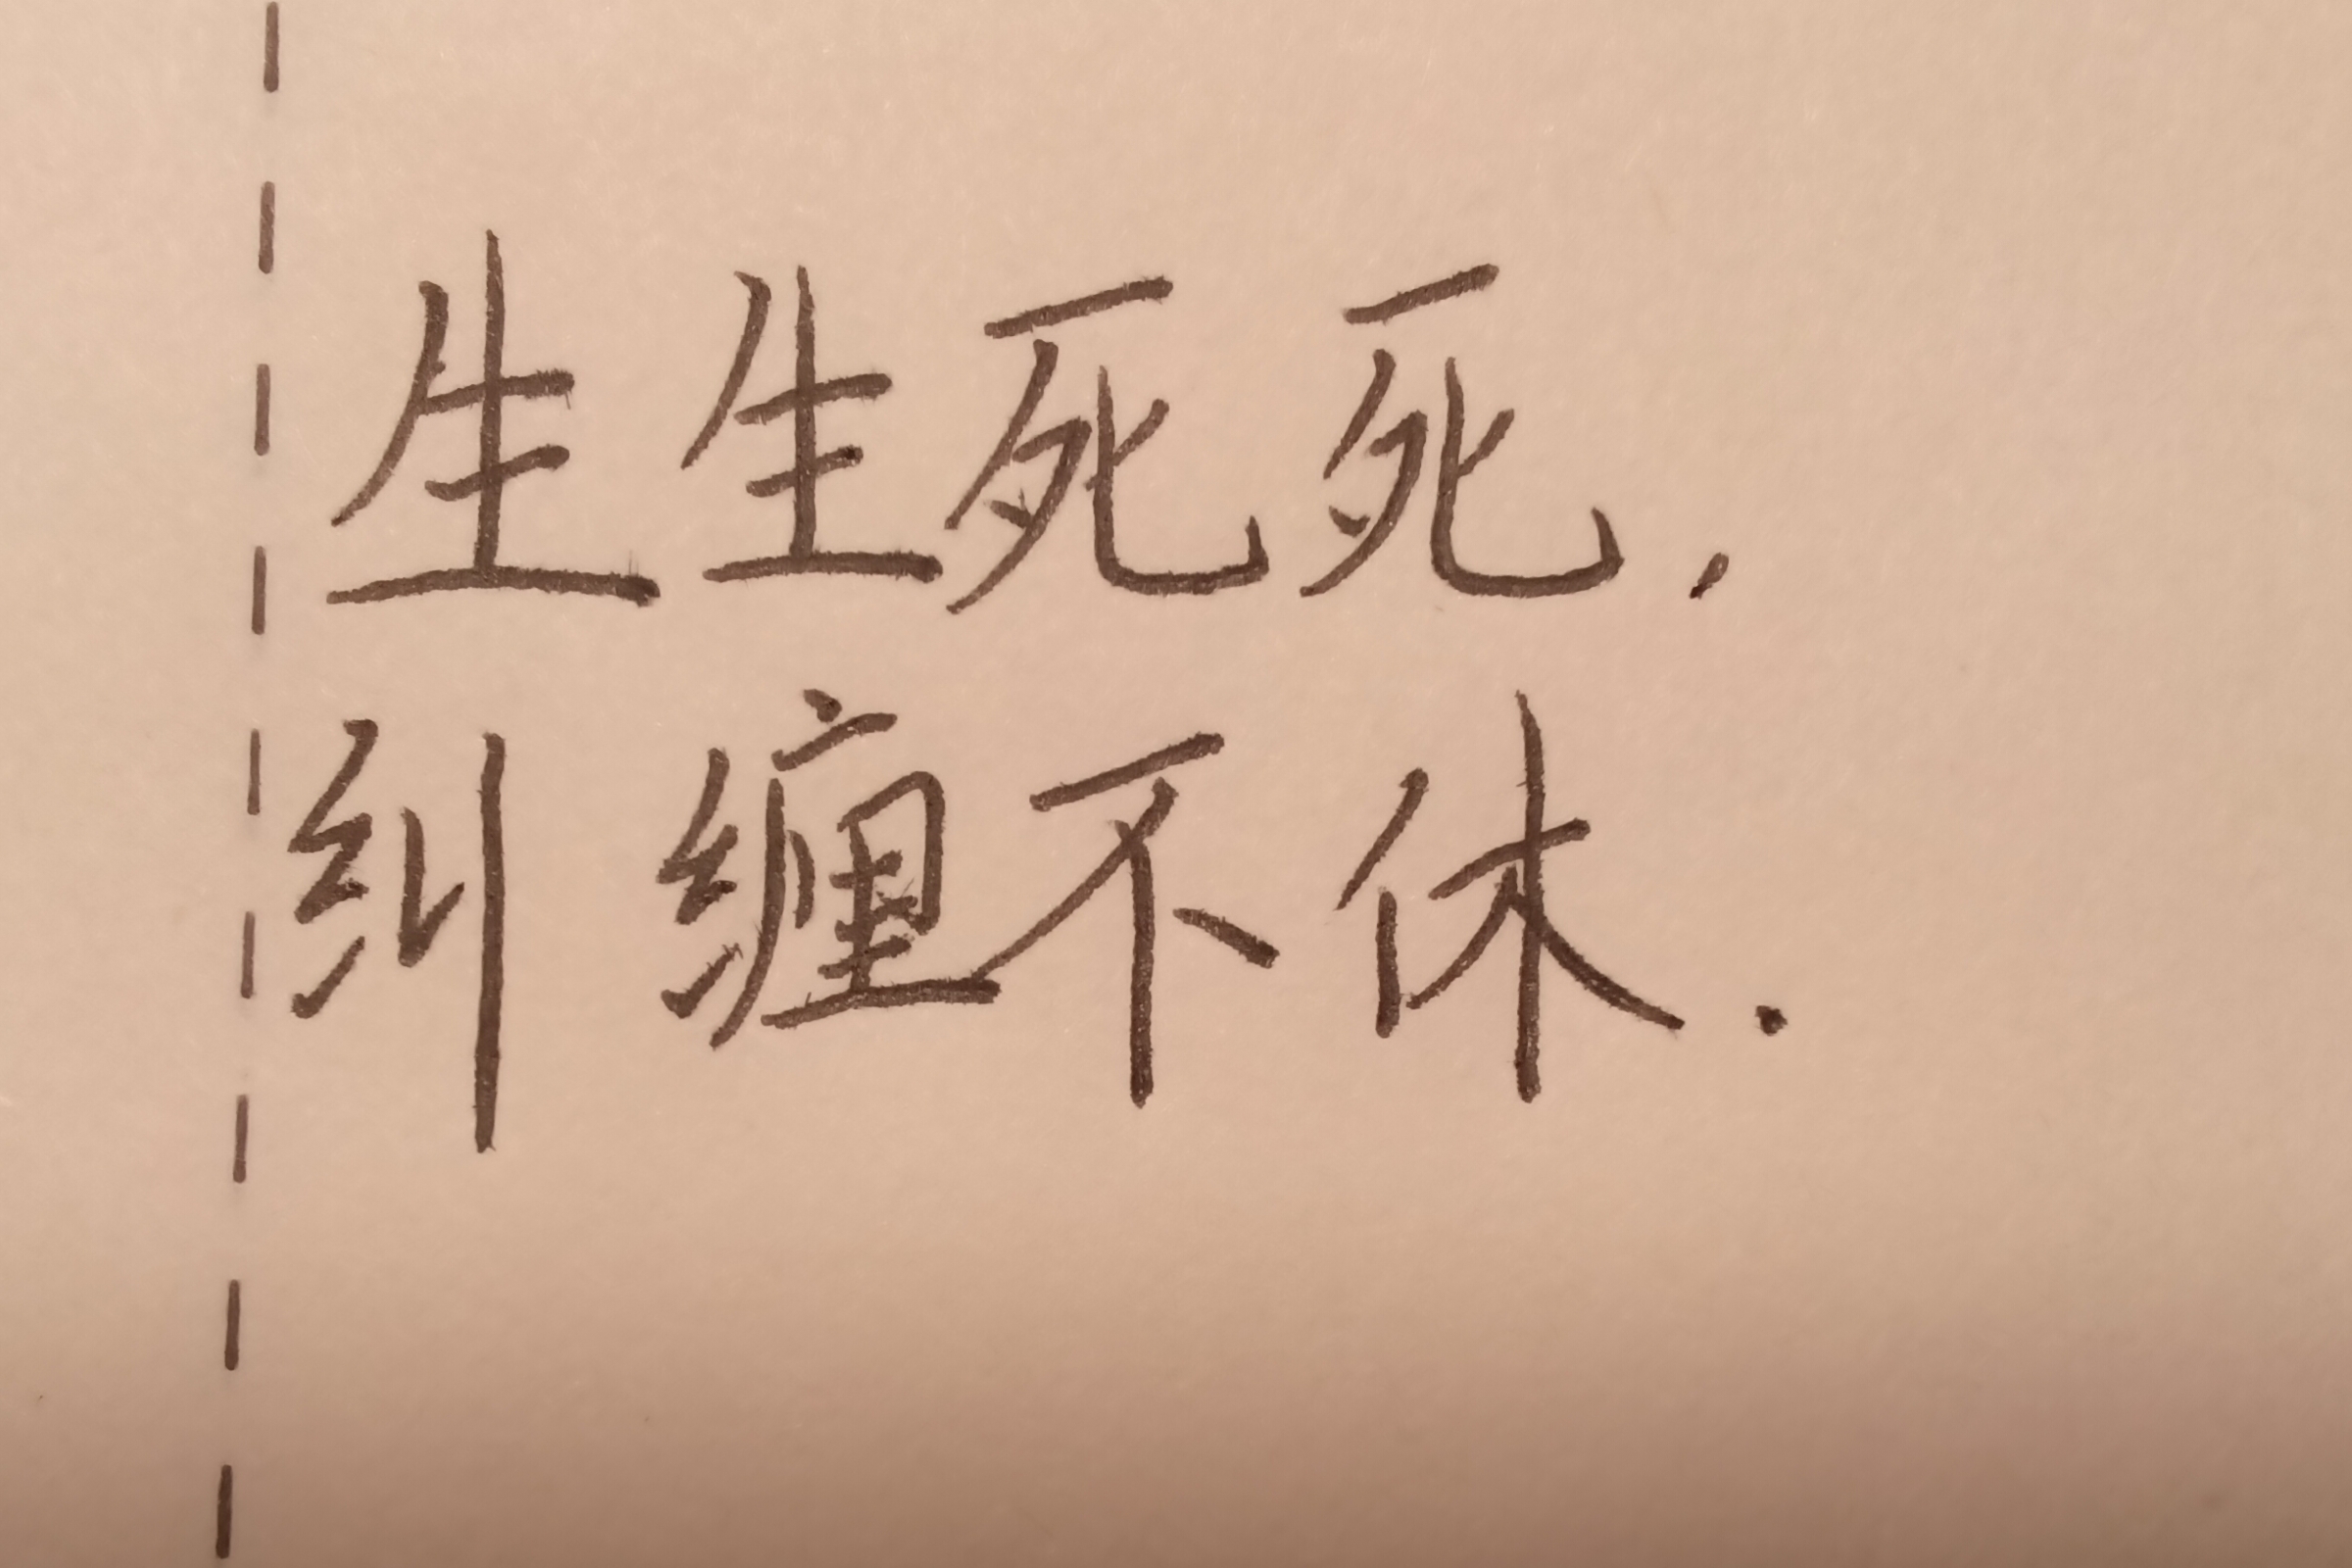 生生死死,
纠缠不休.